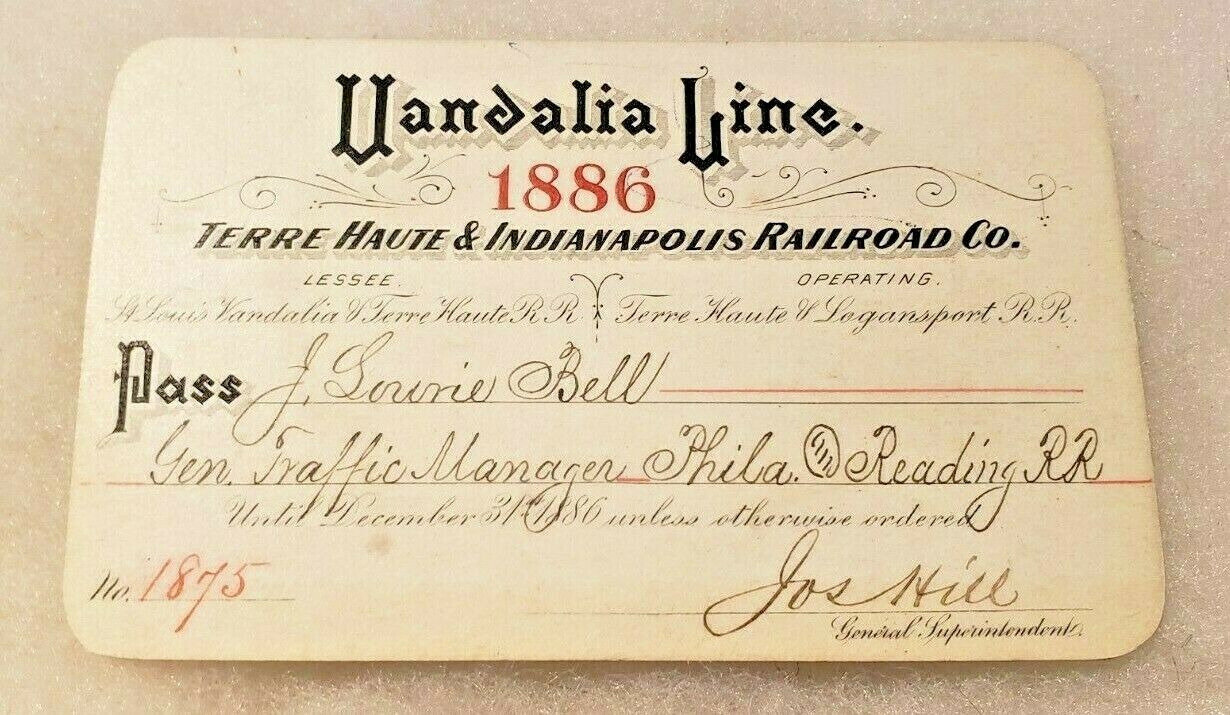 Vandalia Line.
1886
TERRE HAUTE & INDIANAPOLIS RAILROAD CO.
LESSEE. OPERATING.
St Louis Vandalia & Terre Haute R R Terre Haute & Logansport R. R.
Pass J. Lowrie Bell
Gen. Traffic Manager Phila. & Reading RR
Until December 31st 1886 unless otherwise ordered
No. 1875
Jos Hill
General Superintendent.